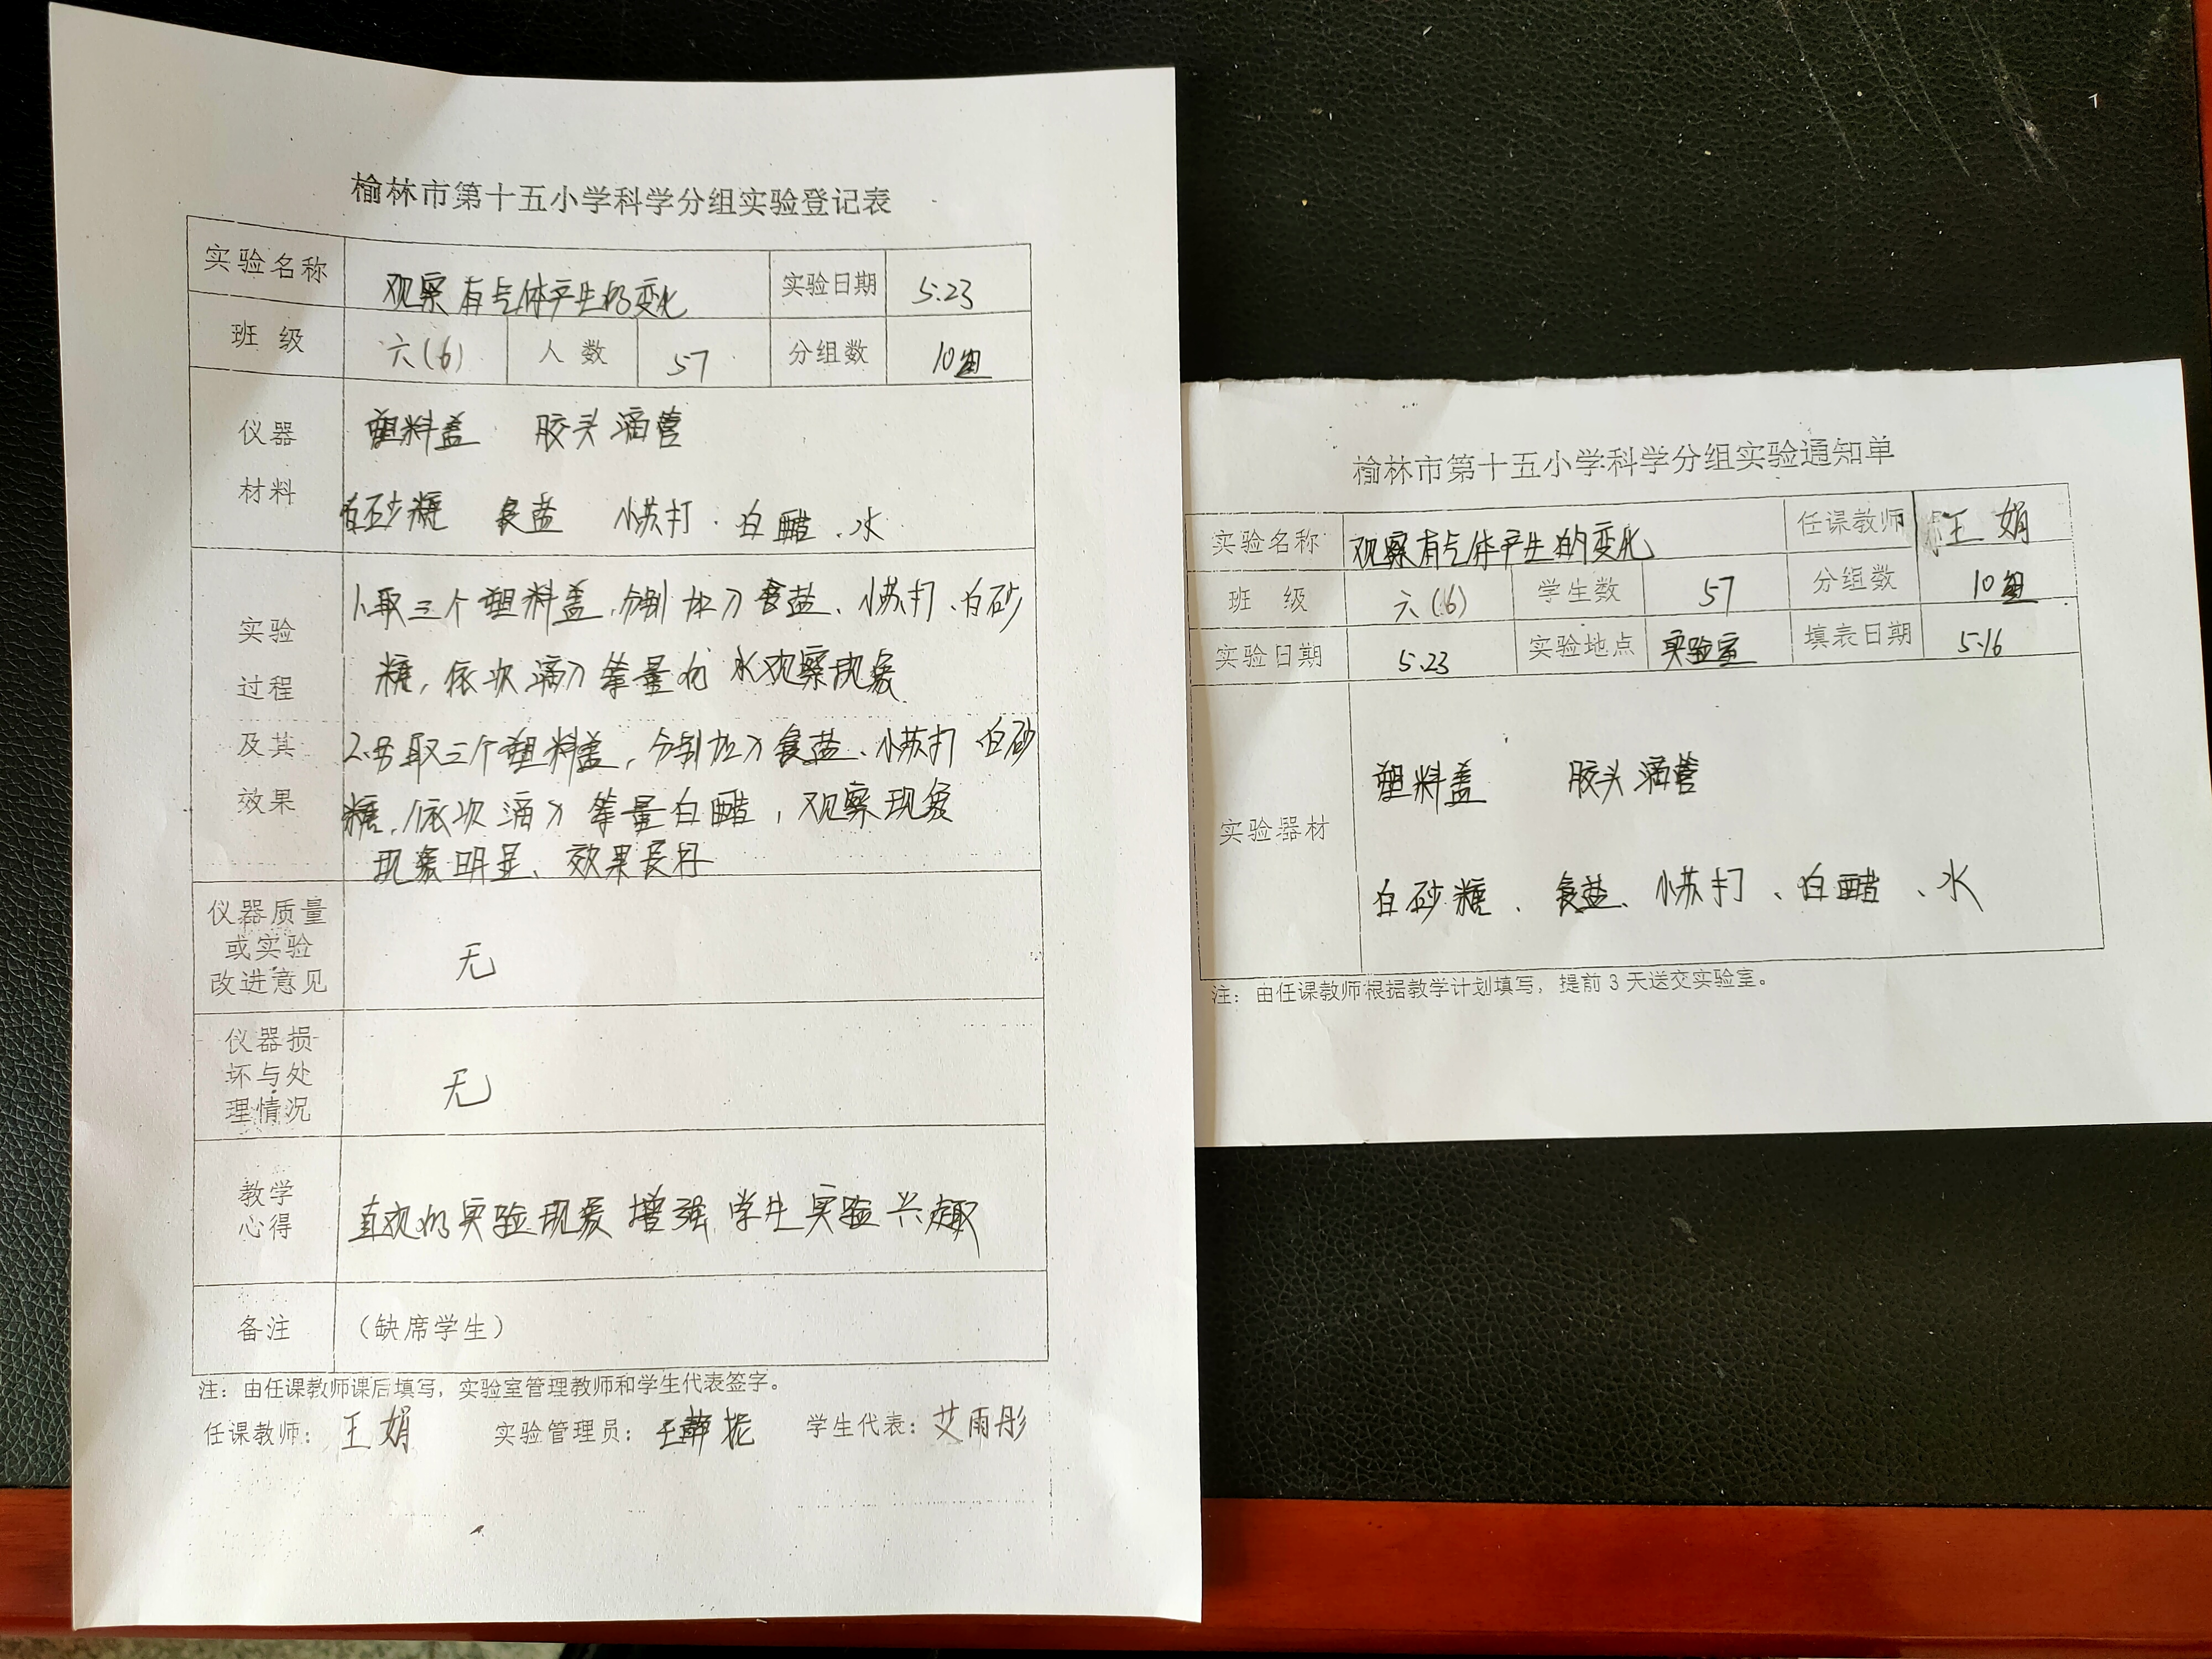 榆林市第十五小学科学分组实验登记表
实验名称 观察有气体产生的变化 实验日期 5.23
班 级 六(6) 人 数 57 分组数 10组
仪器 塑料盖 胶头滴管
材料 白砂糖 食盐 小苏打、白醋、水
实验 1.取三个塑料盖,分别加入食盐、小苏打、白砂
过程 糖,依次滴入等量的水观察现象
及其 2.另取三个塑料盖,分别加入食盐、小苏打 白砂
效果 糖,依次滴入等量白醋,观察现象
现象明显、效果良好
仪器质量
或实验 无
改进意见
仪器损
坏与处 无
理情况
教学
心得 直观的实验现象增强学生实验兴趣
备注 (缺席学生)
注:由任课教师课后填写,实验室管理教师和学生代表签字。
任课教师:王娟 实验管理员: 学生代表:艾雨彤
榆林市第十五小学科学分组实验通知单
实验名称 观察有气体产生的变化 任课教师 王娟
班 级 六(6) 学生数 57 分组数 10组
实验日期 5.23 实验地点 实验室 填表日期 5.16
塑料盖 胶头滴管
实验器材
白砂糖、食盐、小苏打、白醋、水
注:由任课教师根据教学计划填写,提前3天送交实验室。